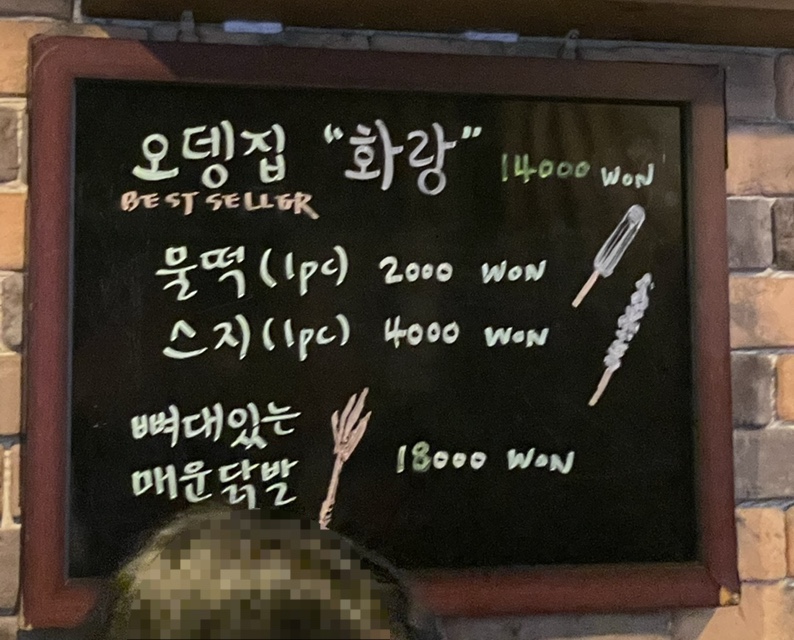 오뎅집 "화랑" 14000 WON
BEST SELLER
물떡(1pc) 2000 WON
스지(1pc) 4000 WON
뼈대있는
매운닭발 18000 WON